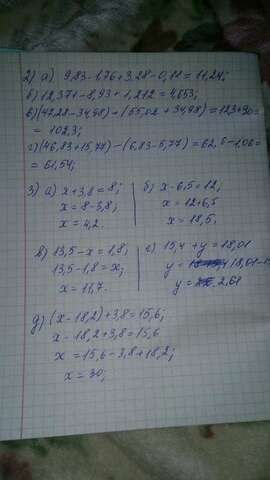 2) а) 9,83-1,76+3,28-0,11=11,24;
б) 12,371-8,93+1,212=4,653;
в) (47,28-34,98)+(55,02+34,98)=12,3+90=
=102,3;
г) (46,83+15,77)-(6,83-5,77)=62,6-1,06=
=61,54;
3) а) x+3,8=8; б) x-6,5=12,
x=8-3,8; x=12+6,5
x=4,2. x=18,5.
в) 13,5-x=1,8; г) 15,4+y=18,01
13,5-1,8=x; y= 18,01-
x=11,7. y= 2,61
д) (x-18,2)+3,8=15,6;
x-18,2+3,8=15,6
x=15,6-3,8+18,2;
x=30;